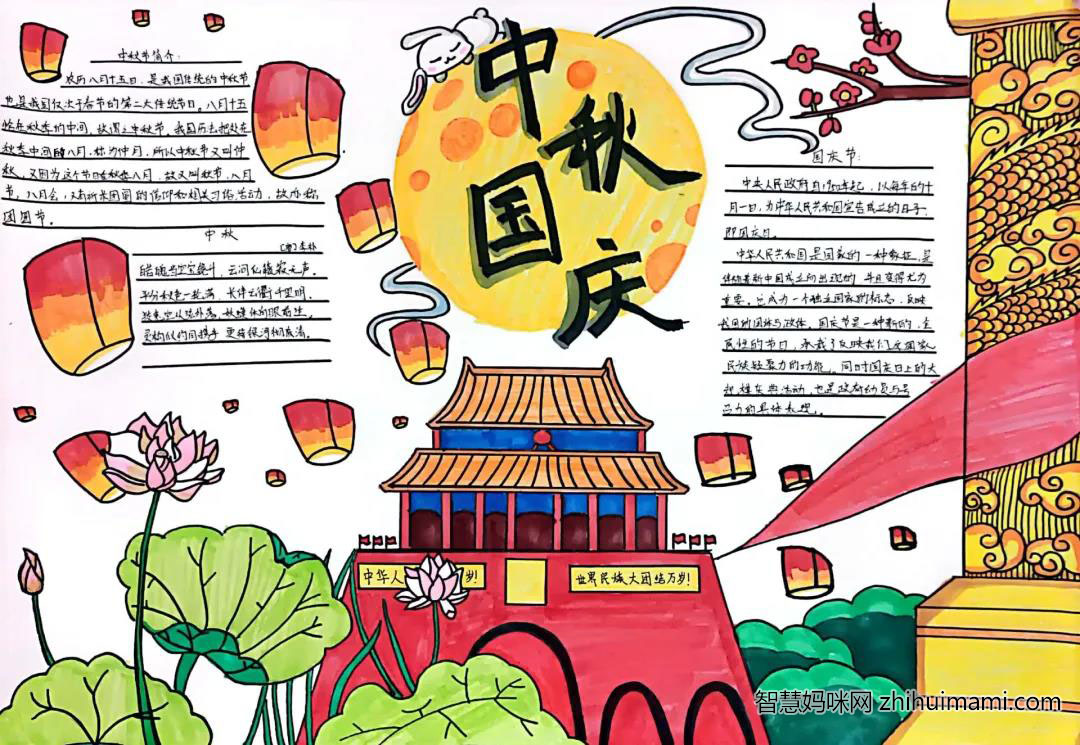 中秋
国庆
中秋节简介:
农历八月十五日,是我国传统的中秋节
也是我国仅次于春节的第二大传统节日。八月十五
恰在秋季的中间,故谓之中秋节。我国历法把处在
秋季中间的八月,称为仲月,所以中秋节又叫仲
秋,又因为这个节日在秋季八月,故又叫秋节,八月
节,八月会,又有祈求团圆的信仰和相关习俗活动,故亦称
团圆节。
中秋
皓魄当空宝镜升,云间仙籁寂无声。
平分秋色一轮满,长伴云衢千里明。
国庆节:
中央人民政府自1949年起,以每年的十
月一日,为中华人民共和国宣告成立的日子,
即国庆日。
中华人民共和国是国家的一种象征,是
伴随着新中国成立而出现的,并且变得尤为
重要。它成为一个独立国家的标志,反映
我国的国体与政体。国庆节是一种新的、全
民性的节日,承载了反映我们这国家、
民族凝聚力的功能。同时国庆日上的大
规模庆典活动,也是政府动员与号
召力的具体表现。
中华人 岁!
世界民族大团结万岁!
智慧妈咪网 zhihuimami.com